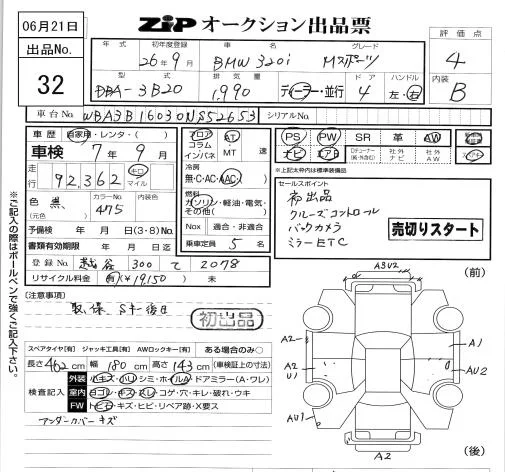 06月21日
ZiP オークション出品票
出品No.
32
評価点
4
内装
B
年式 初年度登録 車名 グレード
26年9月 BMW 320i Mスポーツ
型式 排気量 ドア ハンドル
DBA-3B20 1,990 ディーラー・並行 4 左・右
車台No. WBA3B16030NS52653 シリアルNo.
車歴 自家用・レンタ・( )
車検 7年9月
走行 92,362 キロ マイル
色 黒 カラーNo. 475 内装色
(元色)
予備検 年 月 日(3・8)No.
書類有効期限 年 月 日迄
登録No. 越谷 300 て 2078
リサイクル料金 有(¥19,150) 未
フロア コラム インパネ AT・MT 速
冷房
無・C・AC・AAC
燃料
ガソリン・軽油・電気・その他( )
Nox 適合・非適合
乗車定員 5 名
PS PW SR 革 AW
ナビ エアB
※上記太枠内は標準装備品
セールスポイント
初出品
クルーズコントロール
バックカメラ
ミラーETC
売切りスタート
※ご記入の際はボールペンで強くご記入下さい。
[注意事項]
取、保、Sキー後日
初出品
スペアタイヤ【有】 ジャッキ工具【有】 AWロックキー【有】 ある場合のみ○
長さ 462 cm 幅 180 cm 高さ 143 cm (車検証上の寸法)
検査記入
外装 小キズ・凹・シミ・ホイルA・ドアミラー(A・ワレ)
室内 ヨゴレ・キズ・スレ・コゲ・穴・キレ・破れ・ウキ
FW トビ石・キズ・ヒビ・リペア跡・X要ス
アンダーカバーキズ
(前)
A3U2
A2
A1
A2
U1
AU2
AU1
A2
(後)